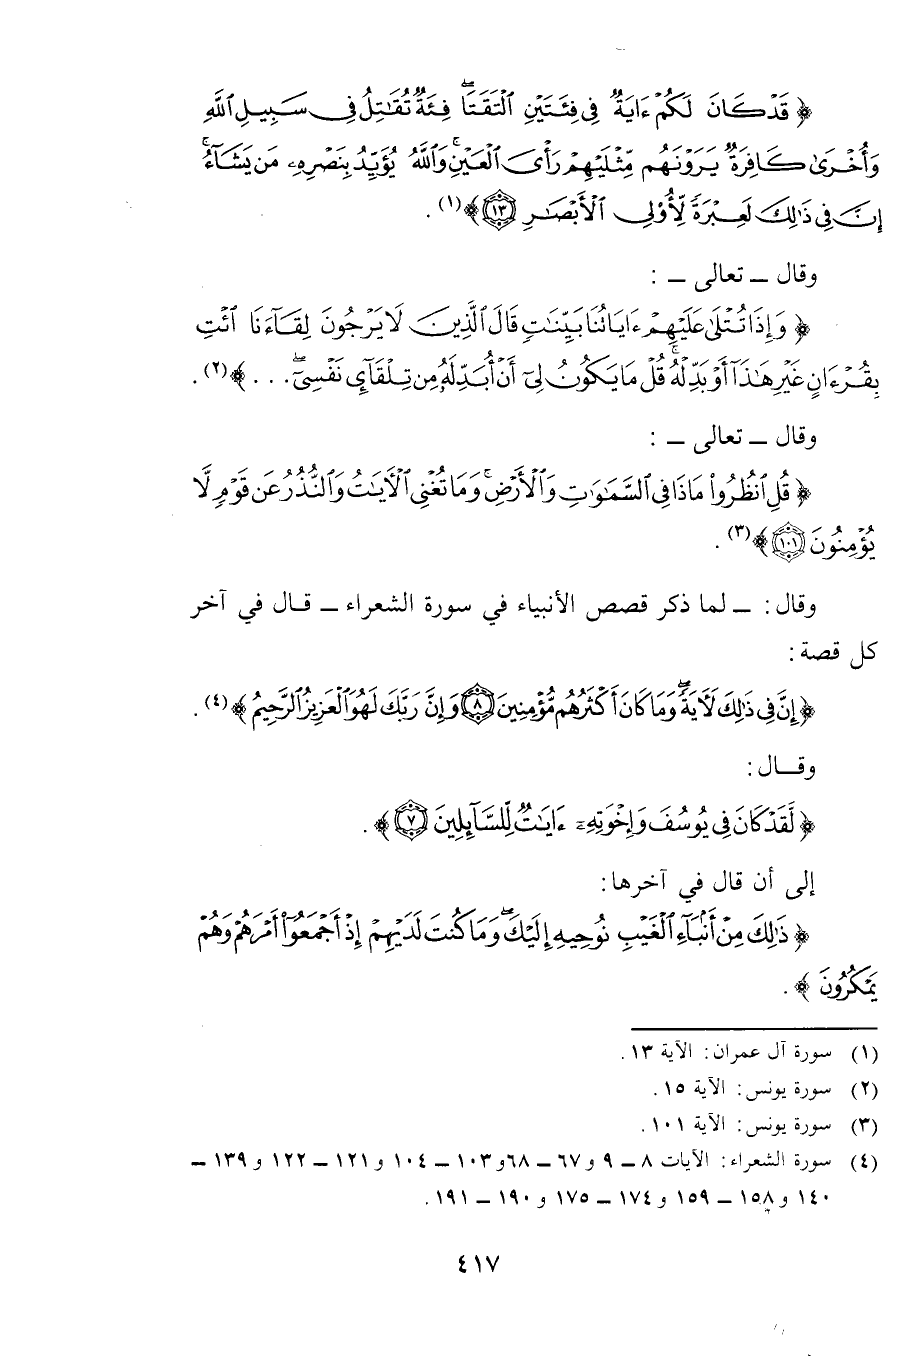 ﴿ قَدْ كَانَ لَكُمْ ءَايَةٌ فِى فِئَتَيْنِ ٱلْتَقَتَا ۖ فِئَةٌ تُقَٰتِلُ فِى سَبِيلِ ٱللَّهِ
وَأُخْرَىٰ كَافِرَةٌ يَرَوْنَهُم مِّثْلَيْهِمْ رَأْىَ ٱلْعَيْنِ ۚ وَٱللَّهُ يُؤَيِّدُ بِنَصْرِهِۦ مَن يَشَآءُ ۚ
إِنَّ فِى ذَٰلِكَ لَعِبْرَةً لِّأُو۟لِى ٱلْأَبْصَٰرِ ١٣ ﴾(١) .
وقال ــ تعالى ــ :
﴿ وَإِذَا تُتْلَىٰ عَلَيْهِمْ ءَايَاتُنَا بَيِّنَٰتٍ قَالَ ٱلَّذِينَ لَا يَرْجُونَ لِقَآءَنَا ٱئْتِ
بِقُرْءَانٍ غَيْرِ هَٰذَآ أَوْ بَدِّلْهُ ۚ قُلْ مَا يَكُونُ لِىٓ أَنْ أُبَدِّلَهُۥ مِن تِلْقَآئِ نَفْسِىٓ ۖ . . . ﴾(٢) .
وقال ــ تعالى ــ :
﴿ قُلِ ٱنظُرُوا۟ مَاذَا فِى ٱلسَّمَٰوَٰتِ وَٱلْأَرْضِ ۚ وَمَا تُغْنِى ٱلْءَايَٰتُ وَٱلنُّذُرُ عَن قَوْمٍ لَّا
يُؤْمِنُونَ ١٠١ ﴾(٣) .
وقال : ــ لما ذكر قصص الأنبياء في سورة الشعراء ــ قال في آخر
كل قصة :
﴿ إِنَّ فِى ذَٰلِكَ لَءَايَةً ۖ وَمَا كَانَ أَكْثَرُهُم مُّؤْمِنِينَ ٨ وَإِنَّ رَبَّكَ لَهُوَ ٱلْعَزِيزُ ٱلرَّحِيمُ ﴾(٤) .
وقــال :
﴿ لَّقَدْ كَانَ فِى يُوسُفَ وَإِخْوَتِهِۦٓ ءَايَٰتٌ لِّلسَّآئِلِينَ ٧ ﴾ .
إلى أن قال في آخرها :
﴿ ذَٰلِكَ مِنْ أَنۢبَآءِ ٱلْغَيْبِ نُوحِيهِ إِلَيْكَ ۖ وَمَا كُنتَ لَدَيْهِمْ إِذْ أَجْمَعُوٓا۟ أَمْرَهُمْ وَهُمْ
يَمْكُرُونَ ﴾ .
(١) سورة آل عمران : الآية ١٣ .
(٢) سورة يونس : الآية ١٥ .
(٣) سورة يونس : الآية ١٠١ .
(٤) سورة الشعراء : الآيات ٨ ــ ٩ و ٦٧ ــ ٦٨ و ١٠٣ ــ ١٠٤ و ١٢١ ــ ١٢٢ و ١٣٩ ــ
١٤٠ و ١٥٨ ــ ١٥٩ و ١٧٤ ــ ١٧٥ و ١٩٠ ــ ١٩١ .
٤١٧